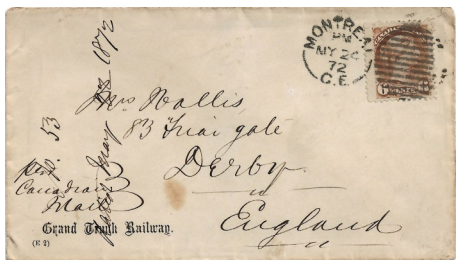 MONTREAL
PM
MY 24
72
C.E
6 CENTS 6
Mrs Wallis
83 Friar gate
Derby
England
No. 53
May 1872
per
Canadian
Mail
Grand Trunk Railway.
(E 2)